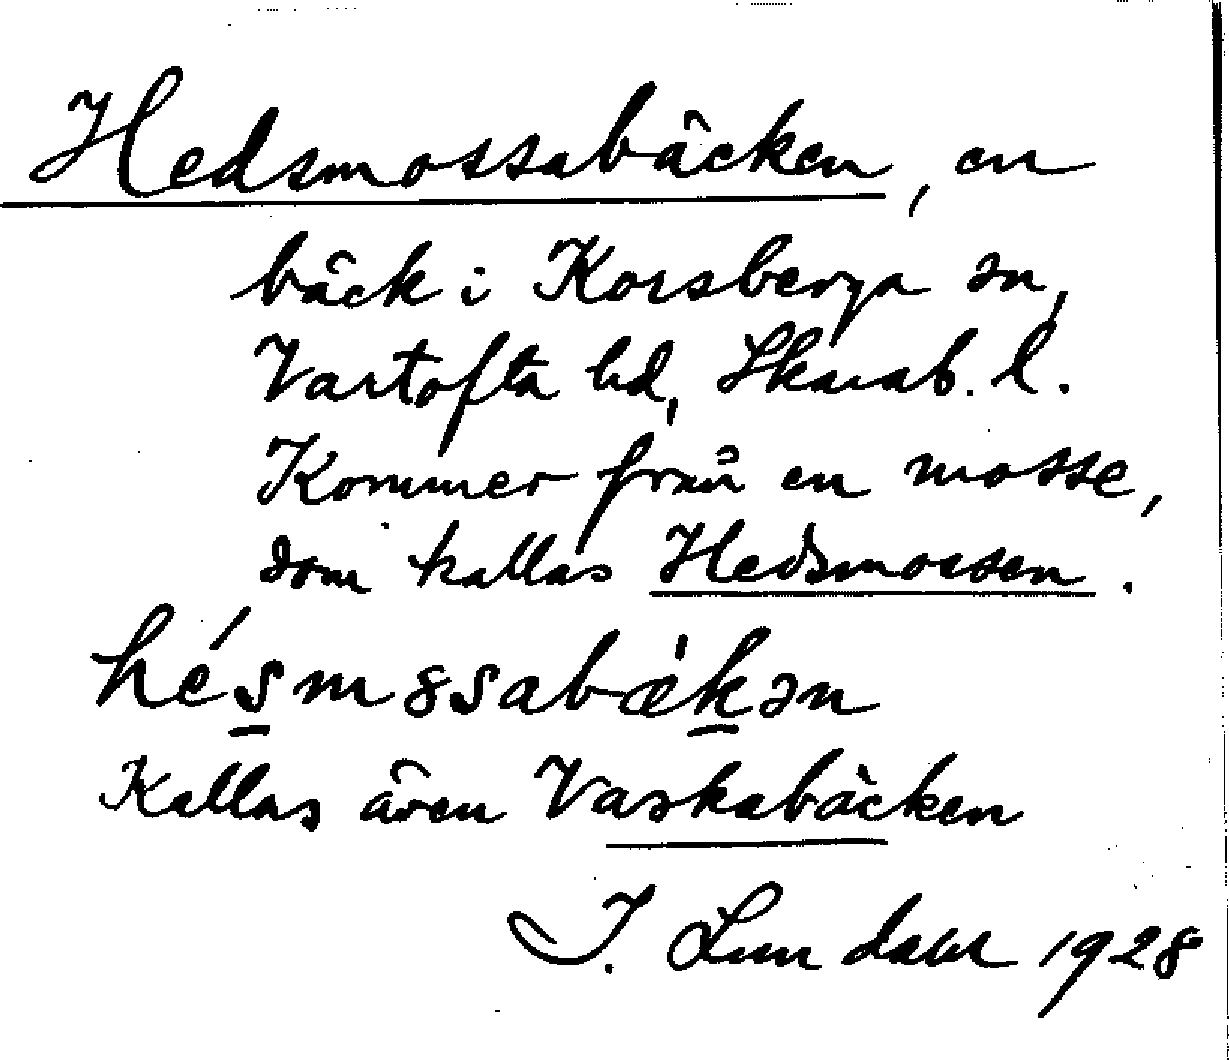 Hedsmossabäcken, en
bäck i Korsberga sn,
Vartofta hd, Skarab. l.
Kommer från en mosse,
som kallas Hedsmossen.
hésmȣsabæ̀kən
Kallas även Vaskabäcken
I. Lundahl 1928